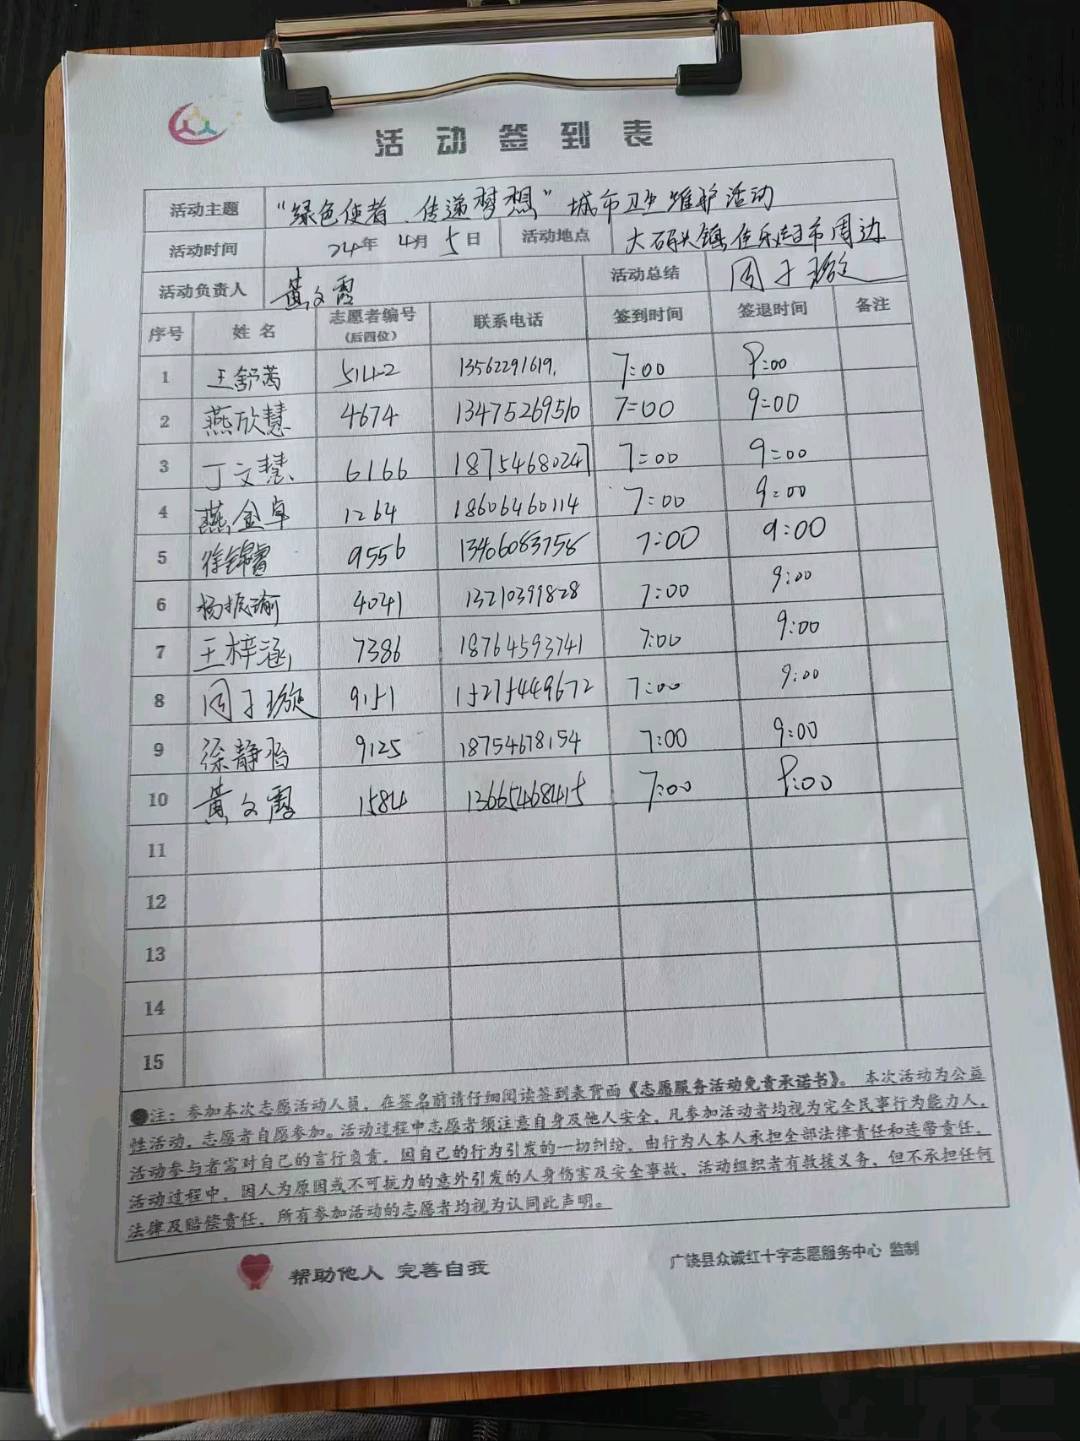 活动签到表
活动主题 “绿色使者、传递梦想”城市卫生维护活动
活动时间 24年 4月 5日 活动地点 大码头镇佳乐超市周边
活动负责人 黄文霞 活动总结 周子璇
序号 姓名 志愿者编号 (后四位) 联系电话 签到时间 签退时间 备注
1 王舒芮 5142 13562291619. 7:00 9:00
2 燕欣慧 4674 13475269510 7:00 9:00
3 丁文慧 6166 18754680247 7:00 9:00
4 燕金卓 1264 18606460114 7:00 9:00
5 徐锦睿 9556 13406083758 7:00 9:00
6 杨振瑜 4041 13210399828 7:00 9:00
7 王梓涵 7386 18764593741 7:00 9:00
8 周子璇 9151 15275449672 7:00 9:00
9 徐静怡 9125 18754678154 7:00 9:00
10 黄文霞 1584 13665468415 7:00 9:00
11
12
13
14
15
●注：参加本次志愿活动人员，在签名前请仔细阅读签到表背面《志愿服务活动免责承诺书》。本次活动为公益
性活动，志愿者自愿参加。活动过程中志愿者须注意自身及他人安全，凡参加活动者均视为完全民事行为能力人，
活动参与者需对自己的言行负责，因自己的行为引发的一切纠纷，由行为人本人承担全部法律责任和连带责任。
活动过程中，因人为原因或不可抗力的意外引发的人身伤害及安全事故，活动组织者有救援义务，但不承担任何
法律及赔偿责任，所有参加活动的志愿者均视为认同此声明。
帮助他人 完善自我
广饶县众诚红十字志愿服务中心 监制